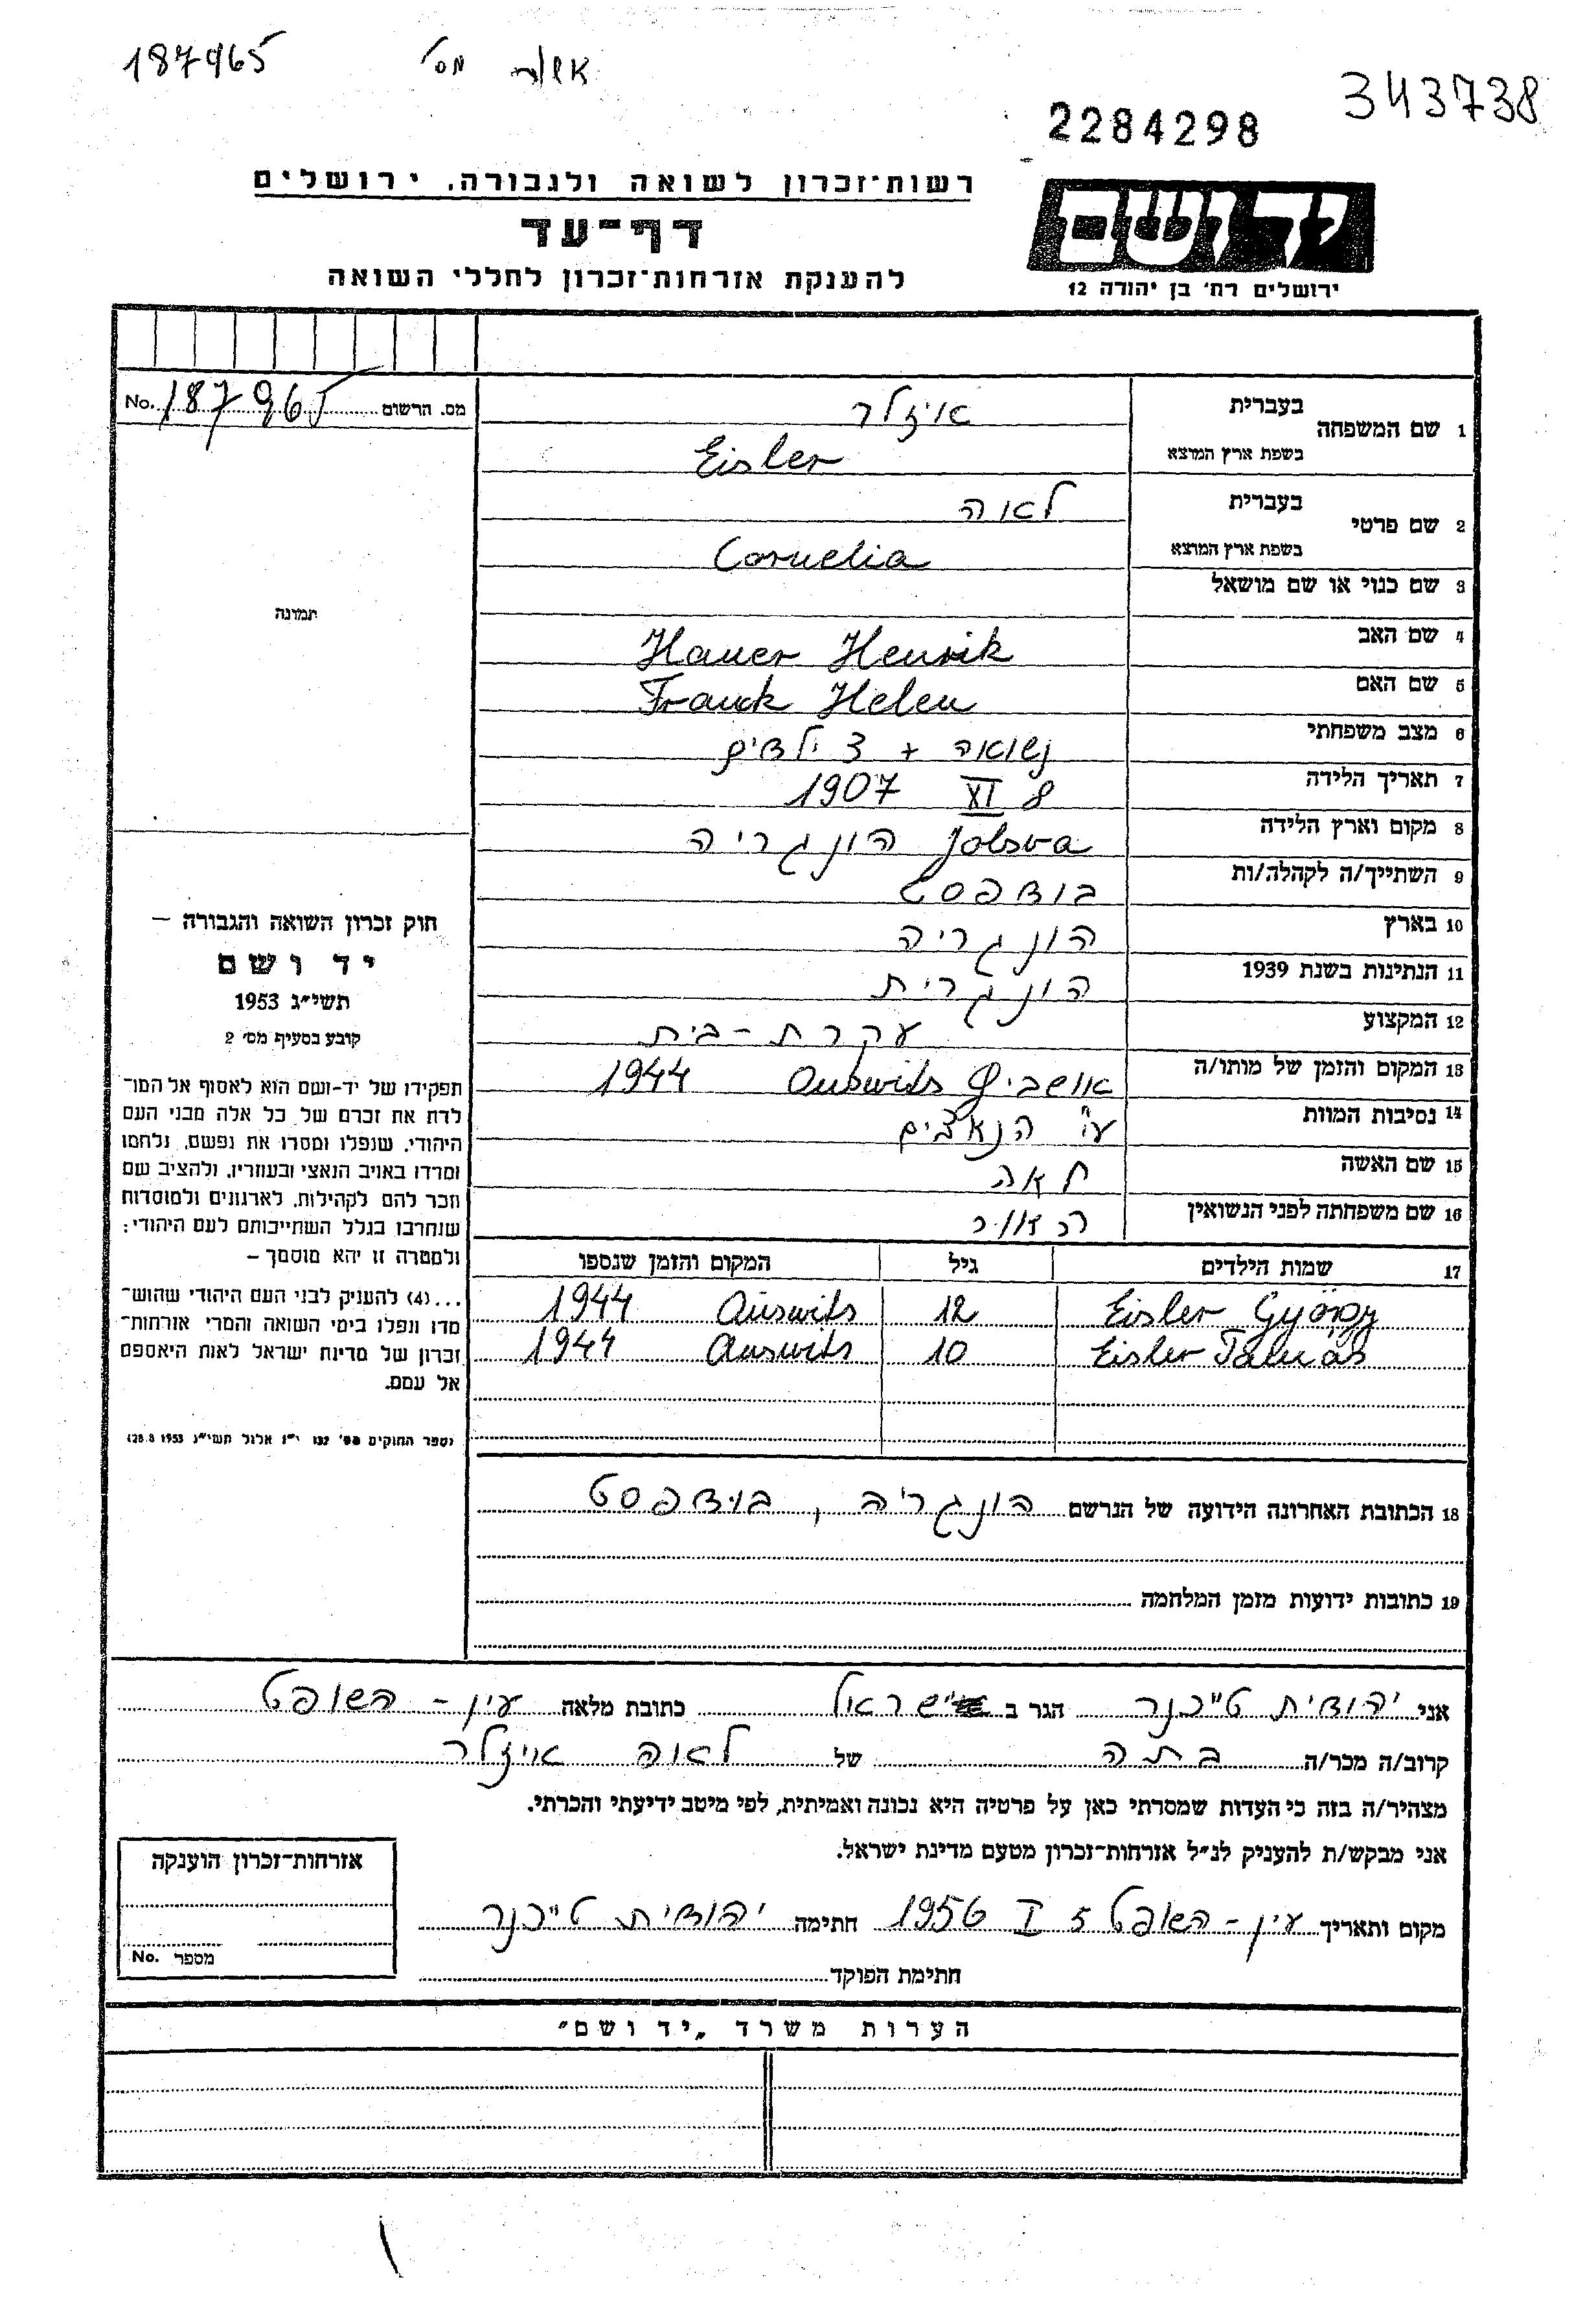 187965 מס' אושר
343738
2284298
רשות־זכרון לשואה ולגבורה, ירושלים
דף־עד
להענקת אזרחות־זכרון לחללי השואה
יד ושם
ירושלים רח' בן יהודה 12
מס. הרשום No. 187965
1 שם המשפחה בעברית איזלר
בשפת ארץ המוצא Eisler
2 שם פרטי בעברית לאה
בשפת ארץ המוצא Cornelia
3 שם כנוי או שם מושאל
4 שם האב Hauer Henrik
5 שם האם Franck Helen
6 מצב משפחתי נשואה + 3 ילדים
7 תאריך הלידה 8 XI 1907
8 מקום וארץ הלידה Jolsva הונגריה
9 השתייך/ה לקהלה/ות בודפסט
10 בארץ הונגריה
11 הנתינות בשנת 1939 הונגרית
12 המקצוע עקרת-בית
13 המקום והזמן של מותו/ה אושביץ Auswits 1944
14 נסיבות המוות ע"י הנאצים
15 שם האשה לאה
16 שם משפחתה לפני הנשואין
17 שמות הילדים גיל המקום והזמן שנספו
Eisler György 12 Auswits 1944
Eisler Tamás 10 Auswits 1944
18 הכתובת האחרונה הידועה של הנרשם הונגריה, בודפסט
19 כתובות ידועות מזמן המלחמה
תמונה
חוק זכרון השואה והגבורה —
יד ושם
תשי״ג 1953
קובע בסעיף מס׳ 2
תפקידו של יד-ושם הוא לאסוף אל המו־
לדת את זכרם של כל אלה מבני העם
היהודי, שנפלו ומסרו את נפשם, נלחמו
ומרדו באויב הנאצי ובעוזריו, ולהציב שם
וזכר להם לקהילות, לארגונים ולמוסדות
שנחרבו בגלל השתייכותם לעם היהודי;
ולמטרה זו יהא מוסמך —
...(4) להעניק לבני העם היהודי שהוש־
מדו ונפלו בימי השואה והמרי אזרחות־
זכרון של מדינת ישראל לאות היאספם
אל עמם.
(ספר החוקים מס׳ 132 י״ז אלול תשי״ג 28.8.1953)
אני יהודית טייכנר הגר ב ישראל כתובת מלאה עין-השופט
קרוב/ה מכר/ה בתה של לאה איזלר
מצהיר/ה בזה כי העדות שמסרתי כאן על פרטיה היא נכונה ואמיתית, לפי מיטב ידיעתי והכרתי.
אני מבקש/ת להעניק לנ״ל אזרחות־זכרון מטעם מדינת ישראל.
מקום ותאריך עין-השופט 5 I 1956 חתימה יהודית טייכנר
חתימת הפוקד
אזרחות־זכרון הוענקה
מספר No.
הערות משרד „יד ושם״